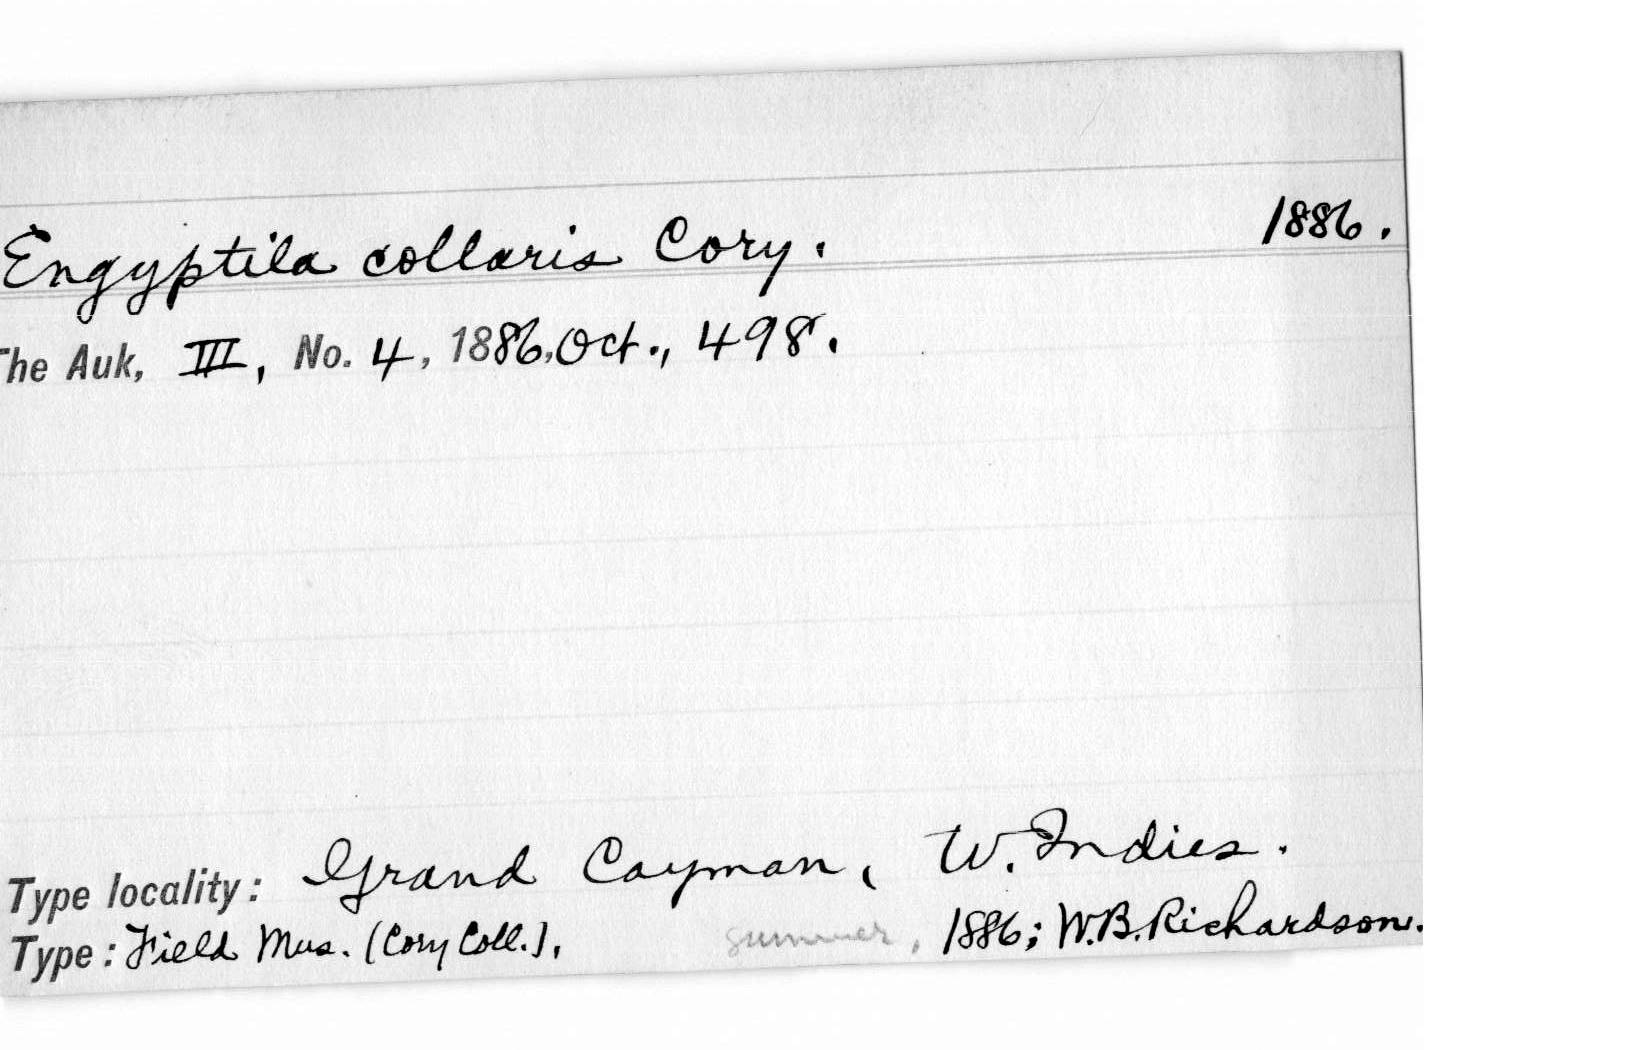 Engyptila collaris Cory. 1886.
The Auk, III, No. 4, 1886, Oct., 498.
Type locality: Grand Cayman, W. Indies.
Type: Field Mus. (Cory Coll.), summer, 1886; W.B. Richardson.